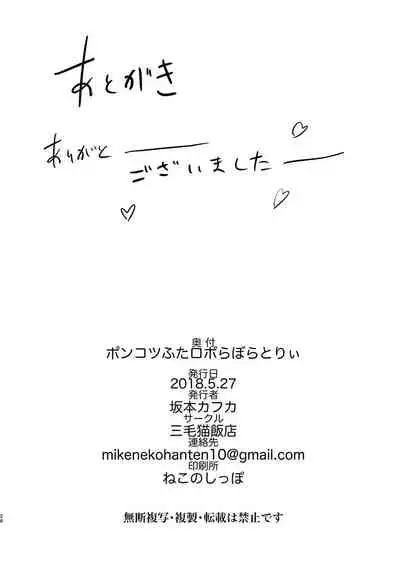 あとがき
ありがと――
ございました――
奥付
ポンコツふたロボらぼらとりぃ
発行日
2018.5.27
発行者
坂本カフカ
サークル
三毛猫飯店
連絡先
mikenekohanten10@gmail.com
印刷所
ねこのしっぽ
無断複写・複製・転載は禁止です